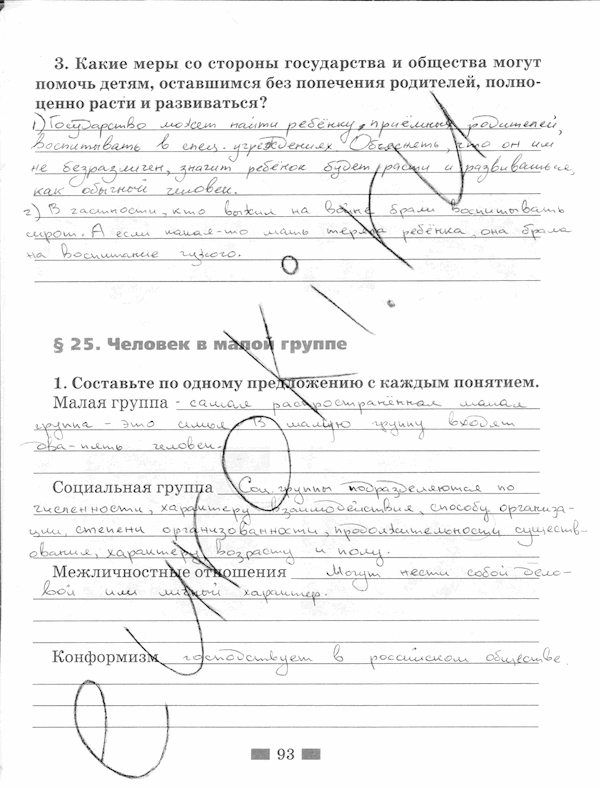 3. Какие меры со стороны государства и общества могут
помочь детям, оставшимся без попечения родителей, полно-
ценно расти и развиваться?
1) Государство может найти ребёнку приёмных родителей,
воспитывать в спец. учреждениях. Объяснять, что он им
не безразличен, значит ребёнок будет расти и развиваться,
как обычный человек.
2) В частности, кто выжил на войне брали воспитывать
сирот. А если какая-то мать теряла ребёнка, она брала
на воспитание чужого.
§ 25. Человек в малой группе
1. Составьте по одному предложению с каждым понятием.
Малая группа - самая распространённая малая
группа - это семья. В малую группу входят
два-пять человек.
Социальная группа Соц. группы подразделяются по
численности, характеру взаимодействия, способу организа-
ции, степени организованности, продолжительности существ-
ования, характеру возрасту и полу.
Межличностные отношения Могут нести собой дело-
вой или личный характер.
Конформизм господствует в российском обществе.
93
euroki.ru